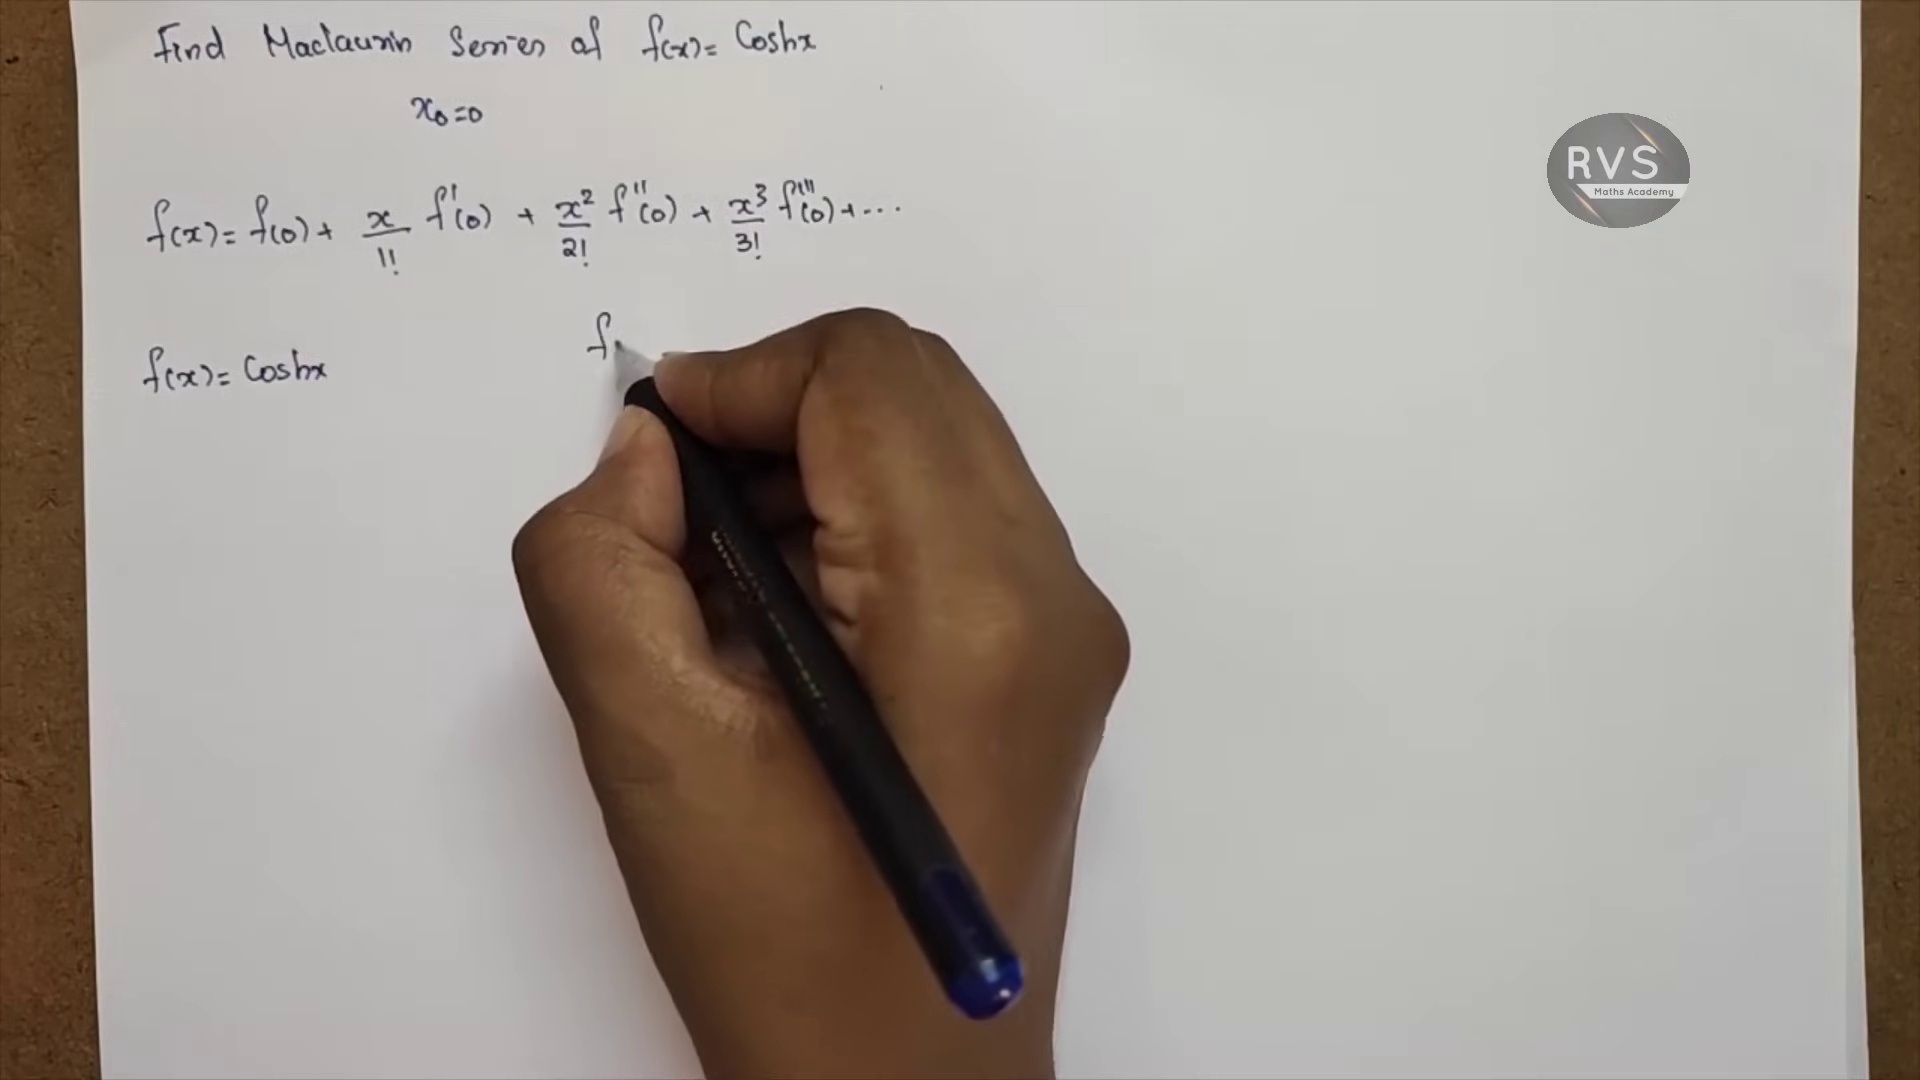 Find Maclaurin Series of f(x) = Coshx
x₀=0
f(x) = f(0) + x/1! f'(0) + x²/2! f''(0) + x³/3! f'''(0) + ...
f(x) = Coshx
f
RVS
Maths Academy